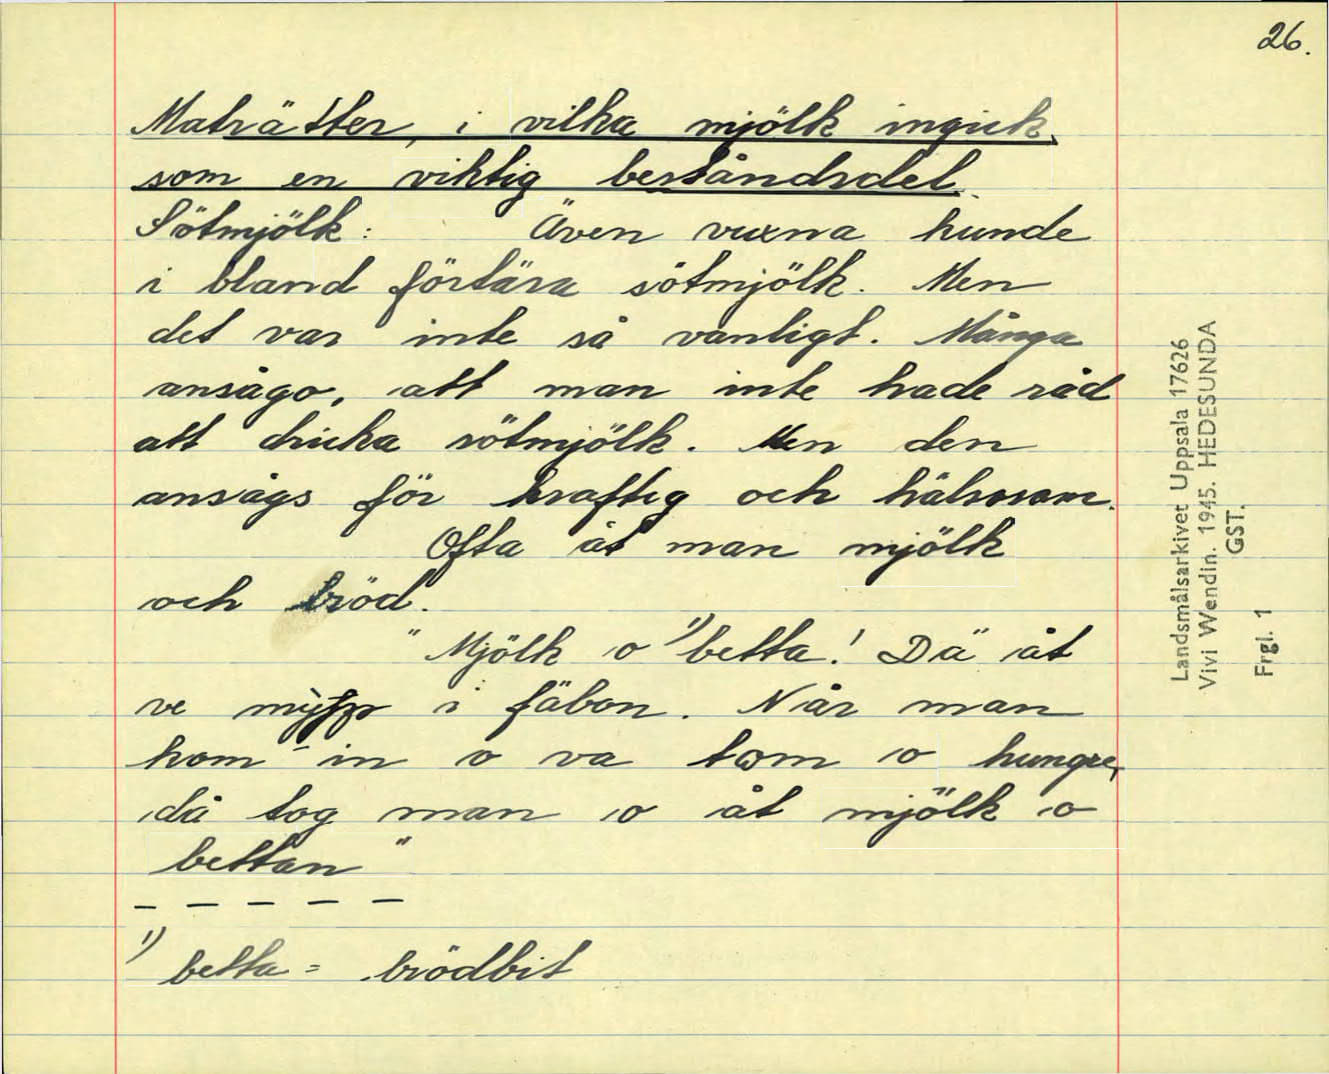 26.
Maträtter, i vilka mjölk ingick
som en viktig beståndsdel.
Sötmjölk: Även vuxna kunde
i bland förtära sötmjölk. Men
det var inte så vanligt. Många
ansågo, att man inte hade råd
att dricka sötmjölk. Men den
ansågs för kraftig och hälsosam.
Ofta åt man mjölk
och bröd.
"Mjölk o 1) betta! Dä åt
ve i fäbon. När man
kom in o va tom o hungre,
då tog man o åt mjölk o
bettan"
- - - - -
1) betta = brödbit
Landsmålsarkivet Uppsala 17626
Vivi Wendin. 1945. HEDESUNDA
GST.
Frgl. 1